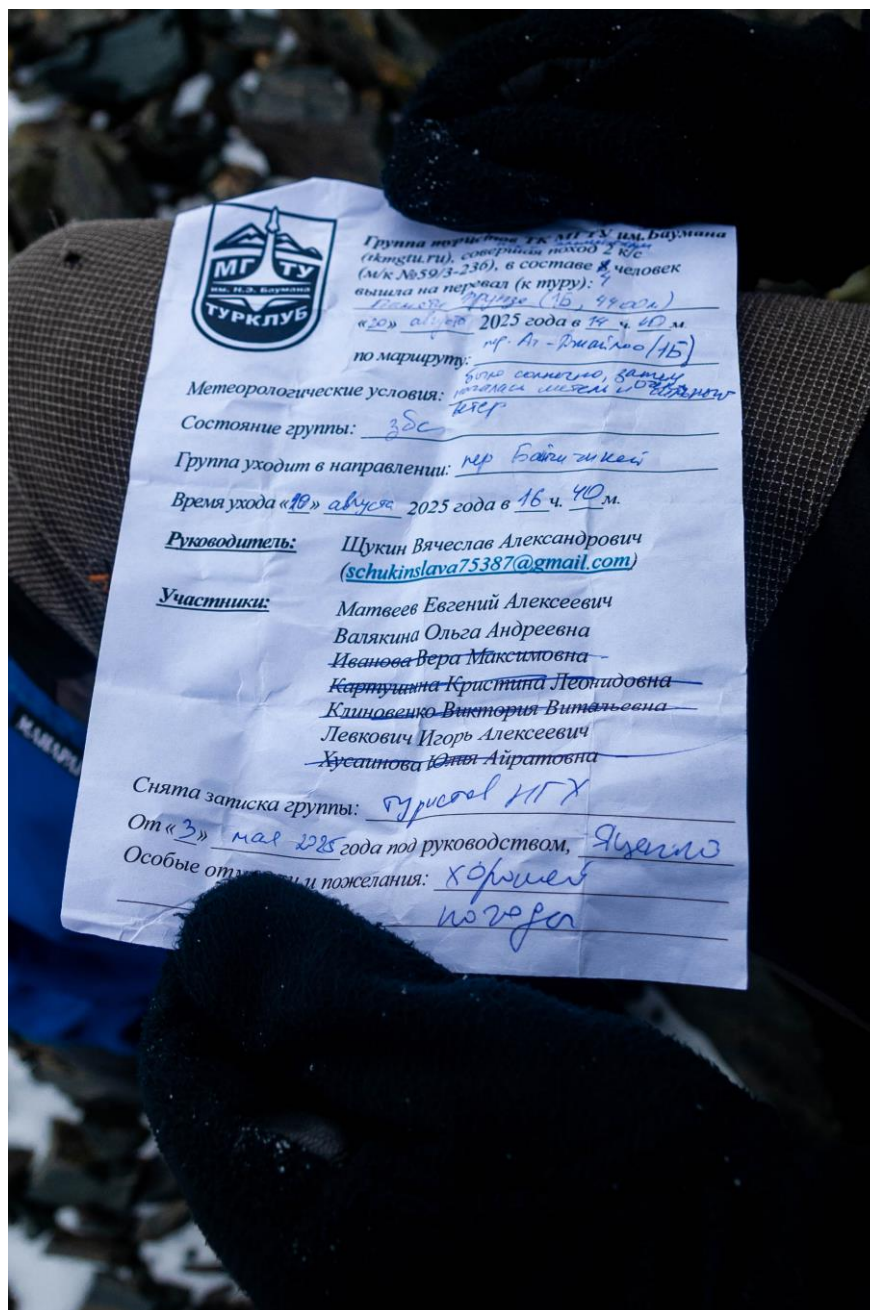 МГ ТУ
им. Н.Э. Баумана
ТУРКЛУБ
Группа туристов ТК МГТУ им.Баумана
(tkmgtu.ru), совершая поход 2 к/с
(м/к №59/3-236), в составе 4 человек
вышла на перевал (к туру):
Памяти Фрунзе (1Б, 4400м)
«20» августа 2025 года в 14 ч. 40 м.
по маршруту: пер. Ат-Джайлоо (1Б)
Метеорологические условия: было солнечно, затем
началась метель и
ветер
Состояние группы: збс
Группа уходит в направлении: пер
Время ухода «20» августа 2025 года в 16 ч. 40 м.
Руководитель: Щукин Вячеслав Александрович
(schukinslava75387@gmail.com)
Участники: Матвеев Евгений Алексеевич
Валякина Ольга Андреевна
Иванова Вера Максимовна
Картушина Кристина Леонидовна
Клиновенко Виктория Витальевна
Левкович Игорь Алексеевич
Хусаинова Юлия Айратовна
Снята записка группы: туристов НГХ
От «3» мая 2025 года под руководством, Яценко
Особые и пожелания: хорошей
погоды